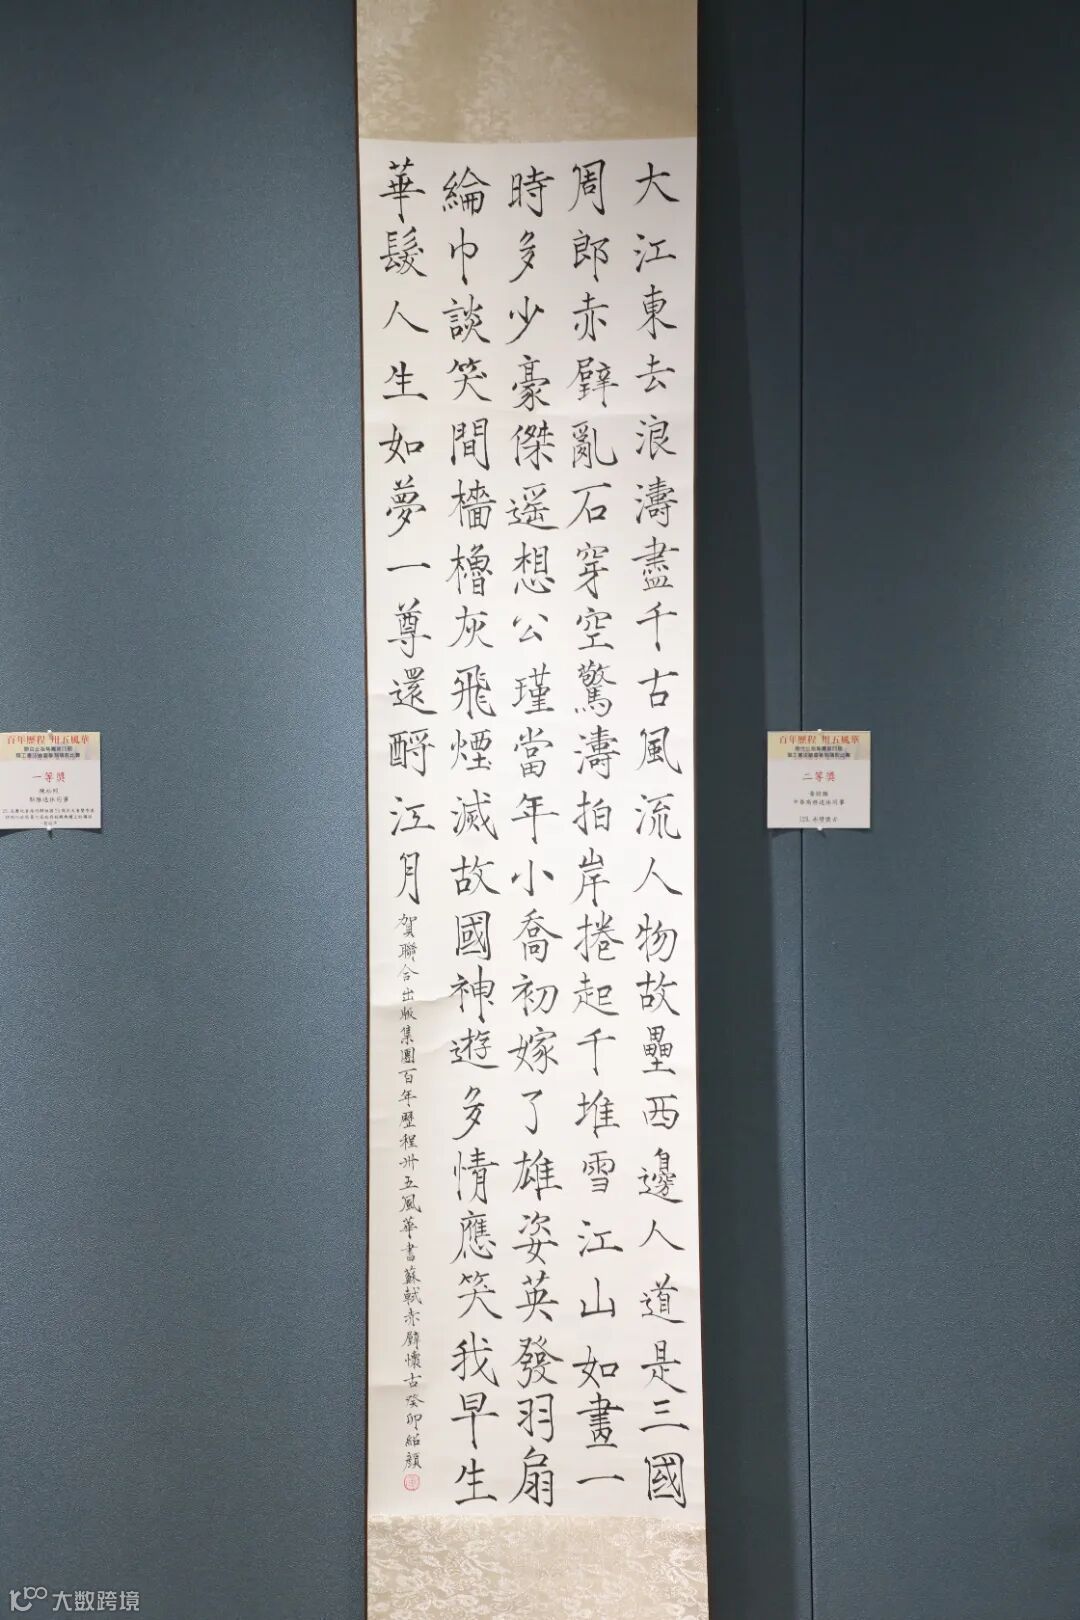 大江東去浪濤盡千古風流人物故壘西邊人道是三國
周郎赤壁亂石穿空驚濤拍岸捲起千堆雪江山如畫一
時多少豪傑遥想公瑾當年小喬初嫁了雄姿英發羽扇
綸巾談笑間檣櫓灰飛煙滅故國神遊多情應笑我早生
華髮人生如夢一尊還酹江月
賀聯合出版集團百年歷程卅五風華書蘇軾赤壁懷古癸卯紹顏
百年歷程 卅五風華
一等獎
百年歷程 卅五風華
二等獎
大数跨境